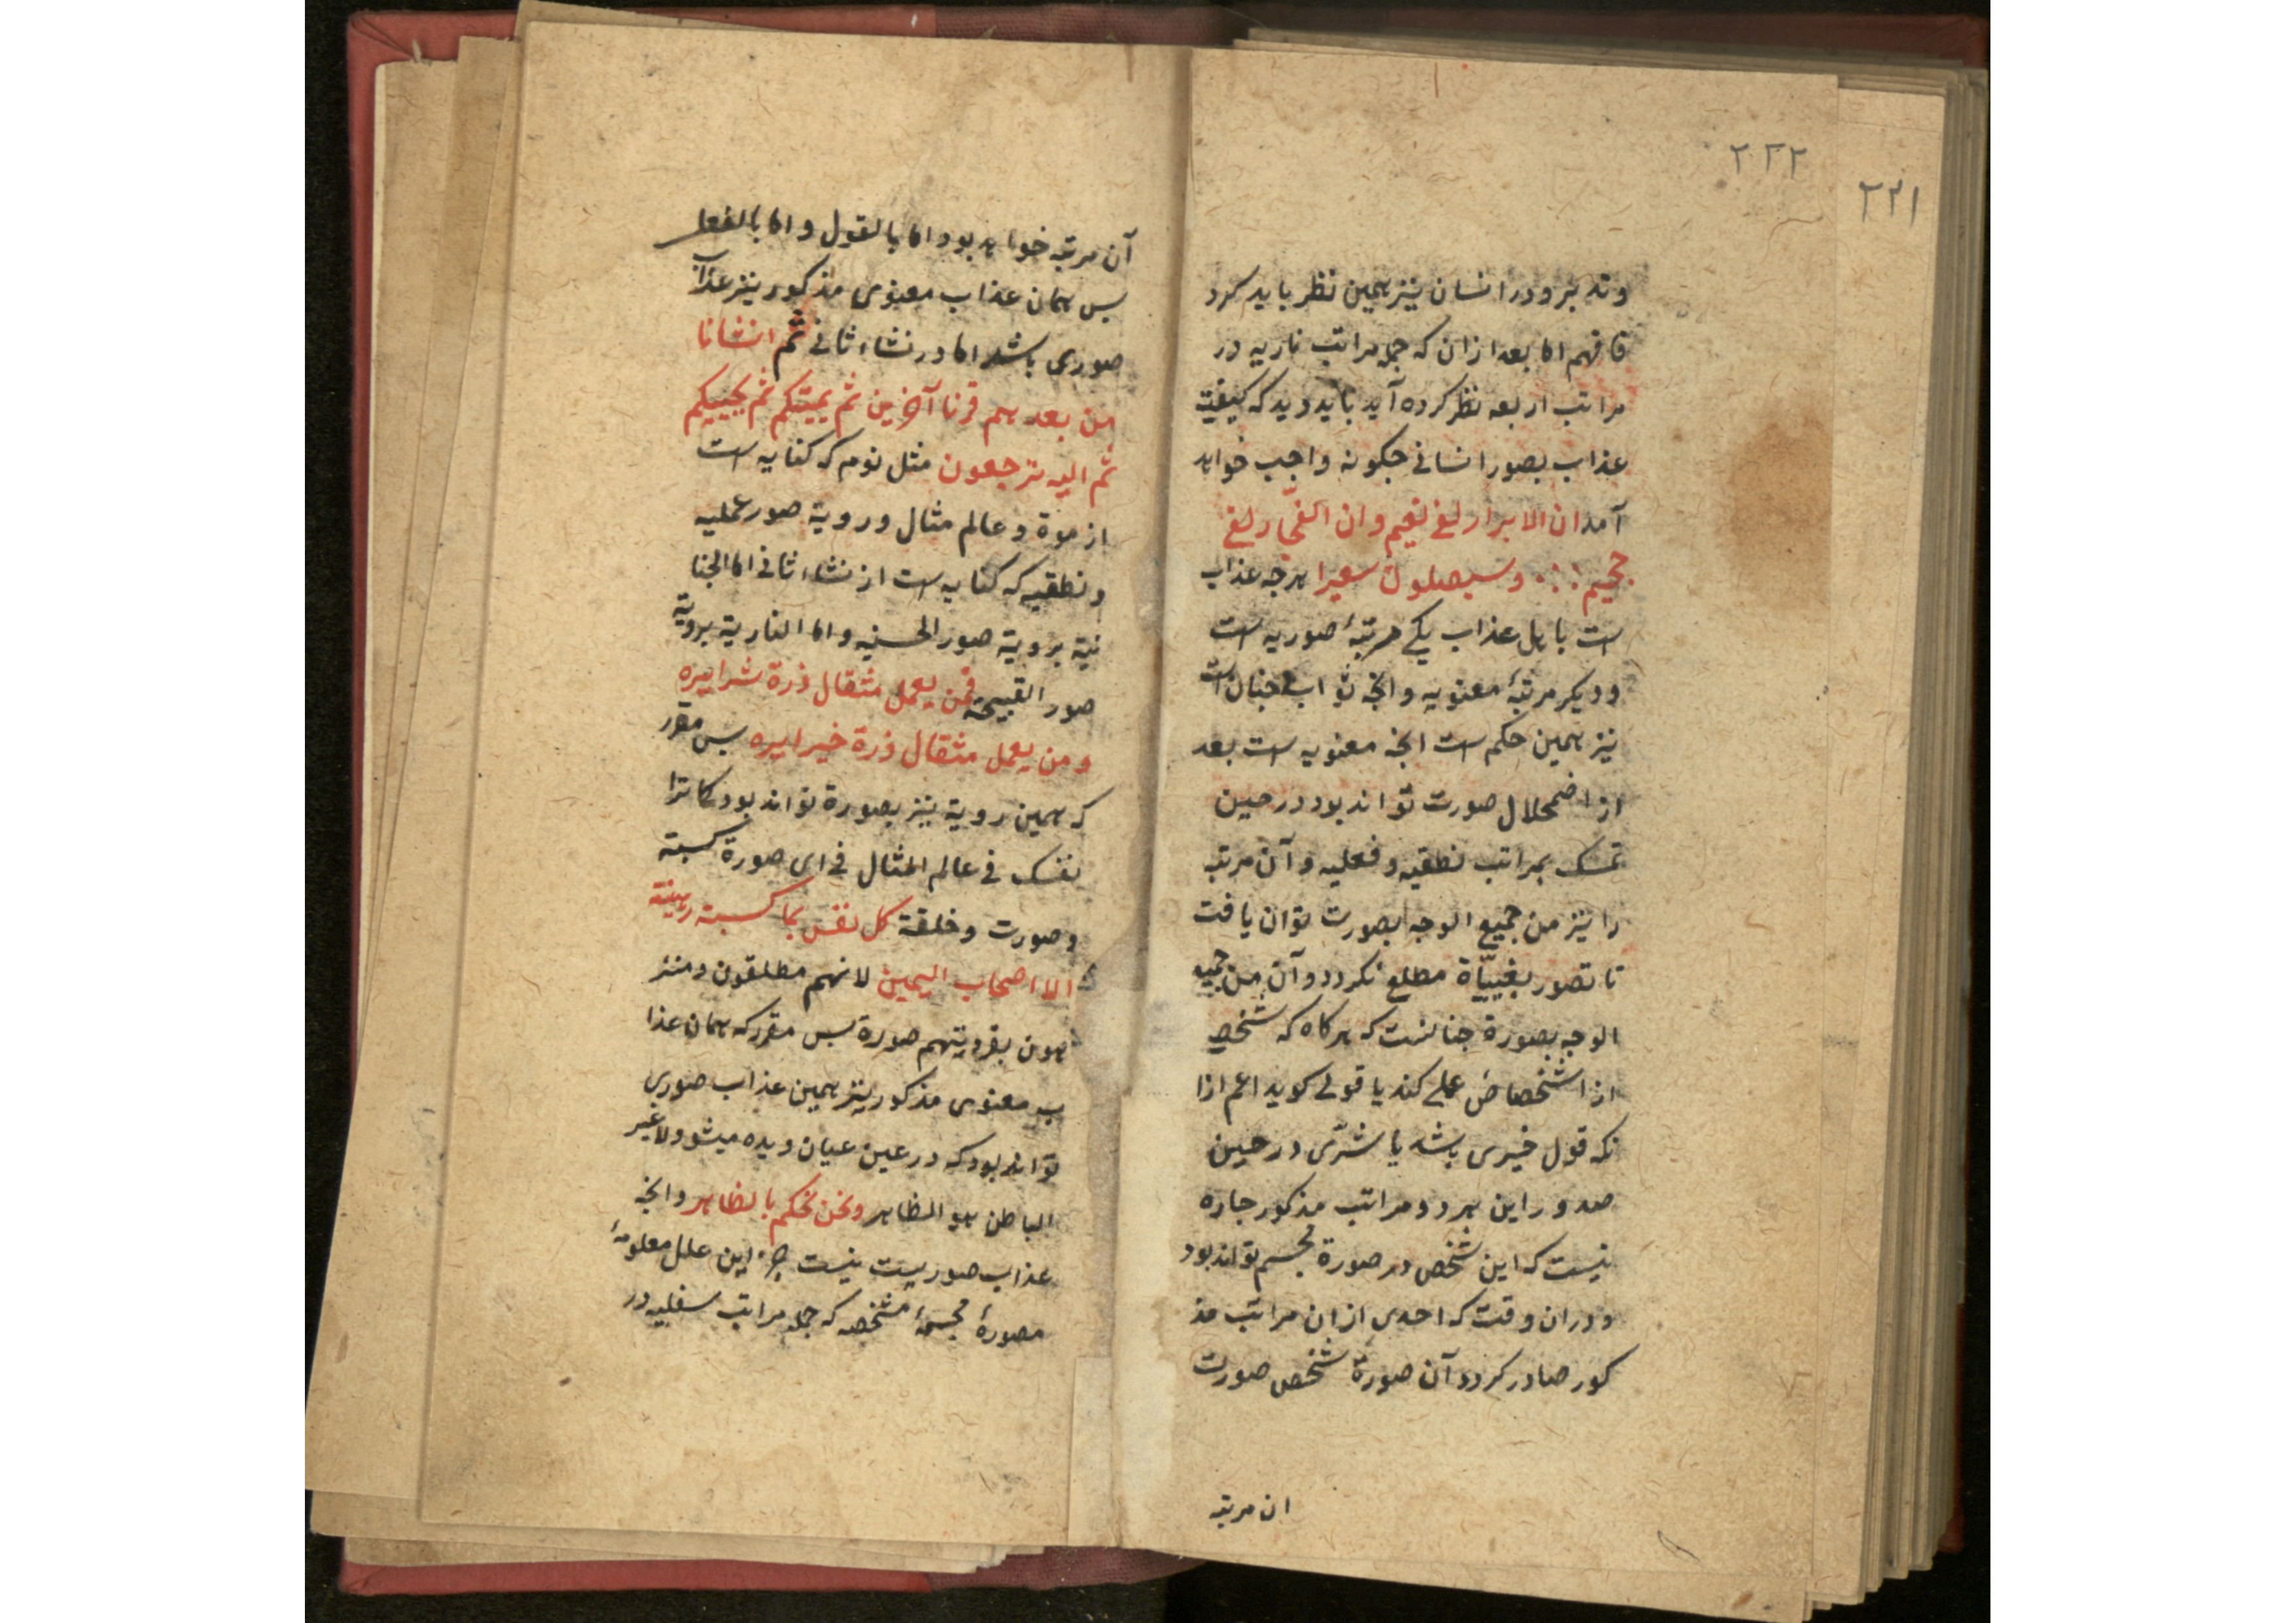 ۲۲۲
۲۲۱
و تدبر و در انسان نیز همین نظر باید کرد
فافهم اما بعد ازان که جمله مراتب ناریه در
مراتب اربعه نظر کرده آید باید دید که کیفیت
عذاب بصور انسانی چکونه واجب خواهد
آمد ان الابرار لفی نعیم و ان الفجّار لفی
جحیم ؛ و سیصلون سعیرا هرچه عذاب
است باهل عذاب یکی مرتبۀ صوریه است
و دیکر مرتبۀ معنویه و انچه ثواب جنانست
نیز همین حکم است انچه معنویه است بعد
از اضمحلال صورت تواند بود در حین
تمسک بمراتب نطقیه و فعلیه و آن مرتبه
را نیز من جمیع الوجه بصورت توان یافت
تا تصور مطلع نکردد و آن من جمیع
الوجه بصورة چنانست که هرکاه که شخصی
از اشخصاص عملی کند یا قولی کوید اعم ازا
نکه قول خیری باشد یا شرّی در حین
صدور این هر دو مراتب مذکور چاره
نیست که این شخص در صورة مجسم تواند بود
و دران وقت که احدی ازان مراتب مذ
کور صادر کردد آن صورة شخص صورت
ان مرتبه
آن مرتبه خواهد بود اما بالقول و اما بالفعل
پس همان عذاب معنوی مذکور نیز عذاب
صوری باشد اما در نشاء ثانی ثم انشانا
من بعدهم قرنا آخرین ثم یمیتکم ثم یحییکم
ثم الیه ترجعون مثل نوم که کنایه است
از موة و عالم مثال و رویة صور عملیه
و نطقیه که کنایه است از نشاء ثانی اما الجنا
نیة برویة صور الحسنیه و اما الناریة برویة
صور القبیحة فمن یعمل مثقال ذرة شرا یره
و من یعمل مثقال ذرة خیرا یره پس مقرر
که همین رویة نیز بصورة تواند بود کما ترا
نفسک فی عالم المثال فی ای صورة کسبته
و صورت و خلقة کل نفس بما کسبة رهینة
الا اصحاب الیمین لانهم مطلقون و منز
هون صورة پس مقرر که همان عذا
ب معنوی مذکور نیز همین عذاب صوری
تواند بود که در عین عیان دیده میشود لا غیر
الباطن هو الظاهر و نحن نحکم بالظاهر و انچه
عذاب صوریست نیست جز این علل معلومۀ
مصورۀ مجسمۀ مشخصه که جمله مراتب سفلیه در